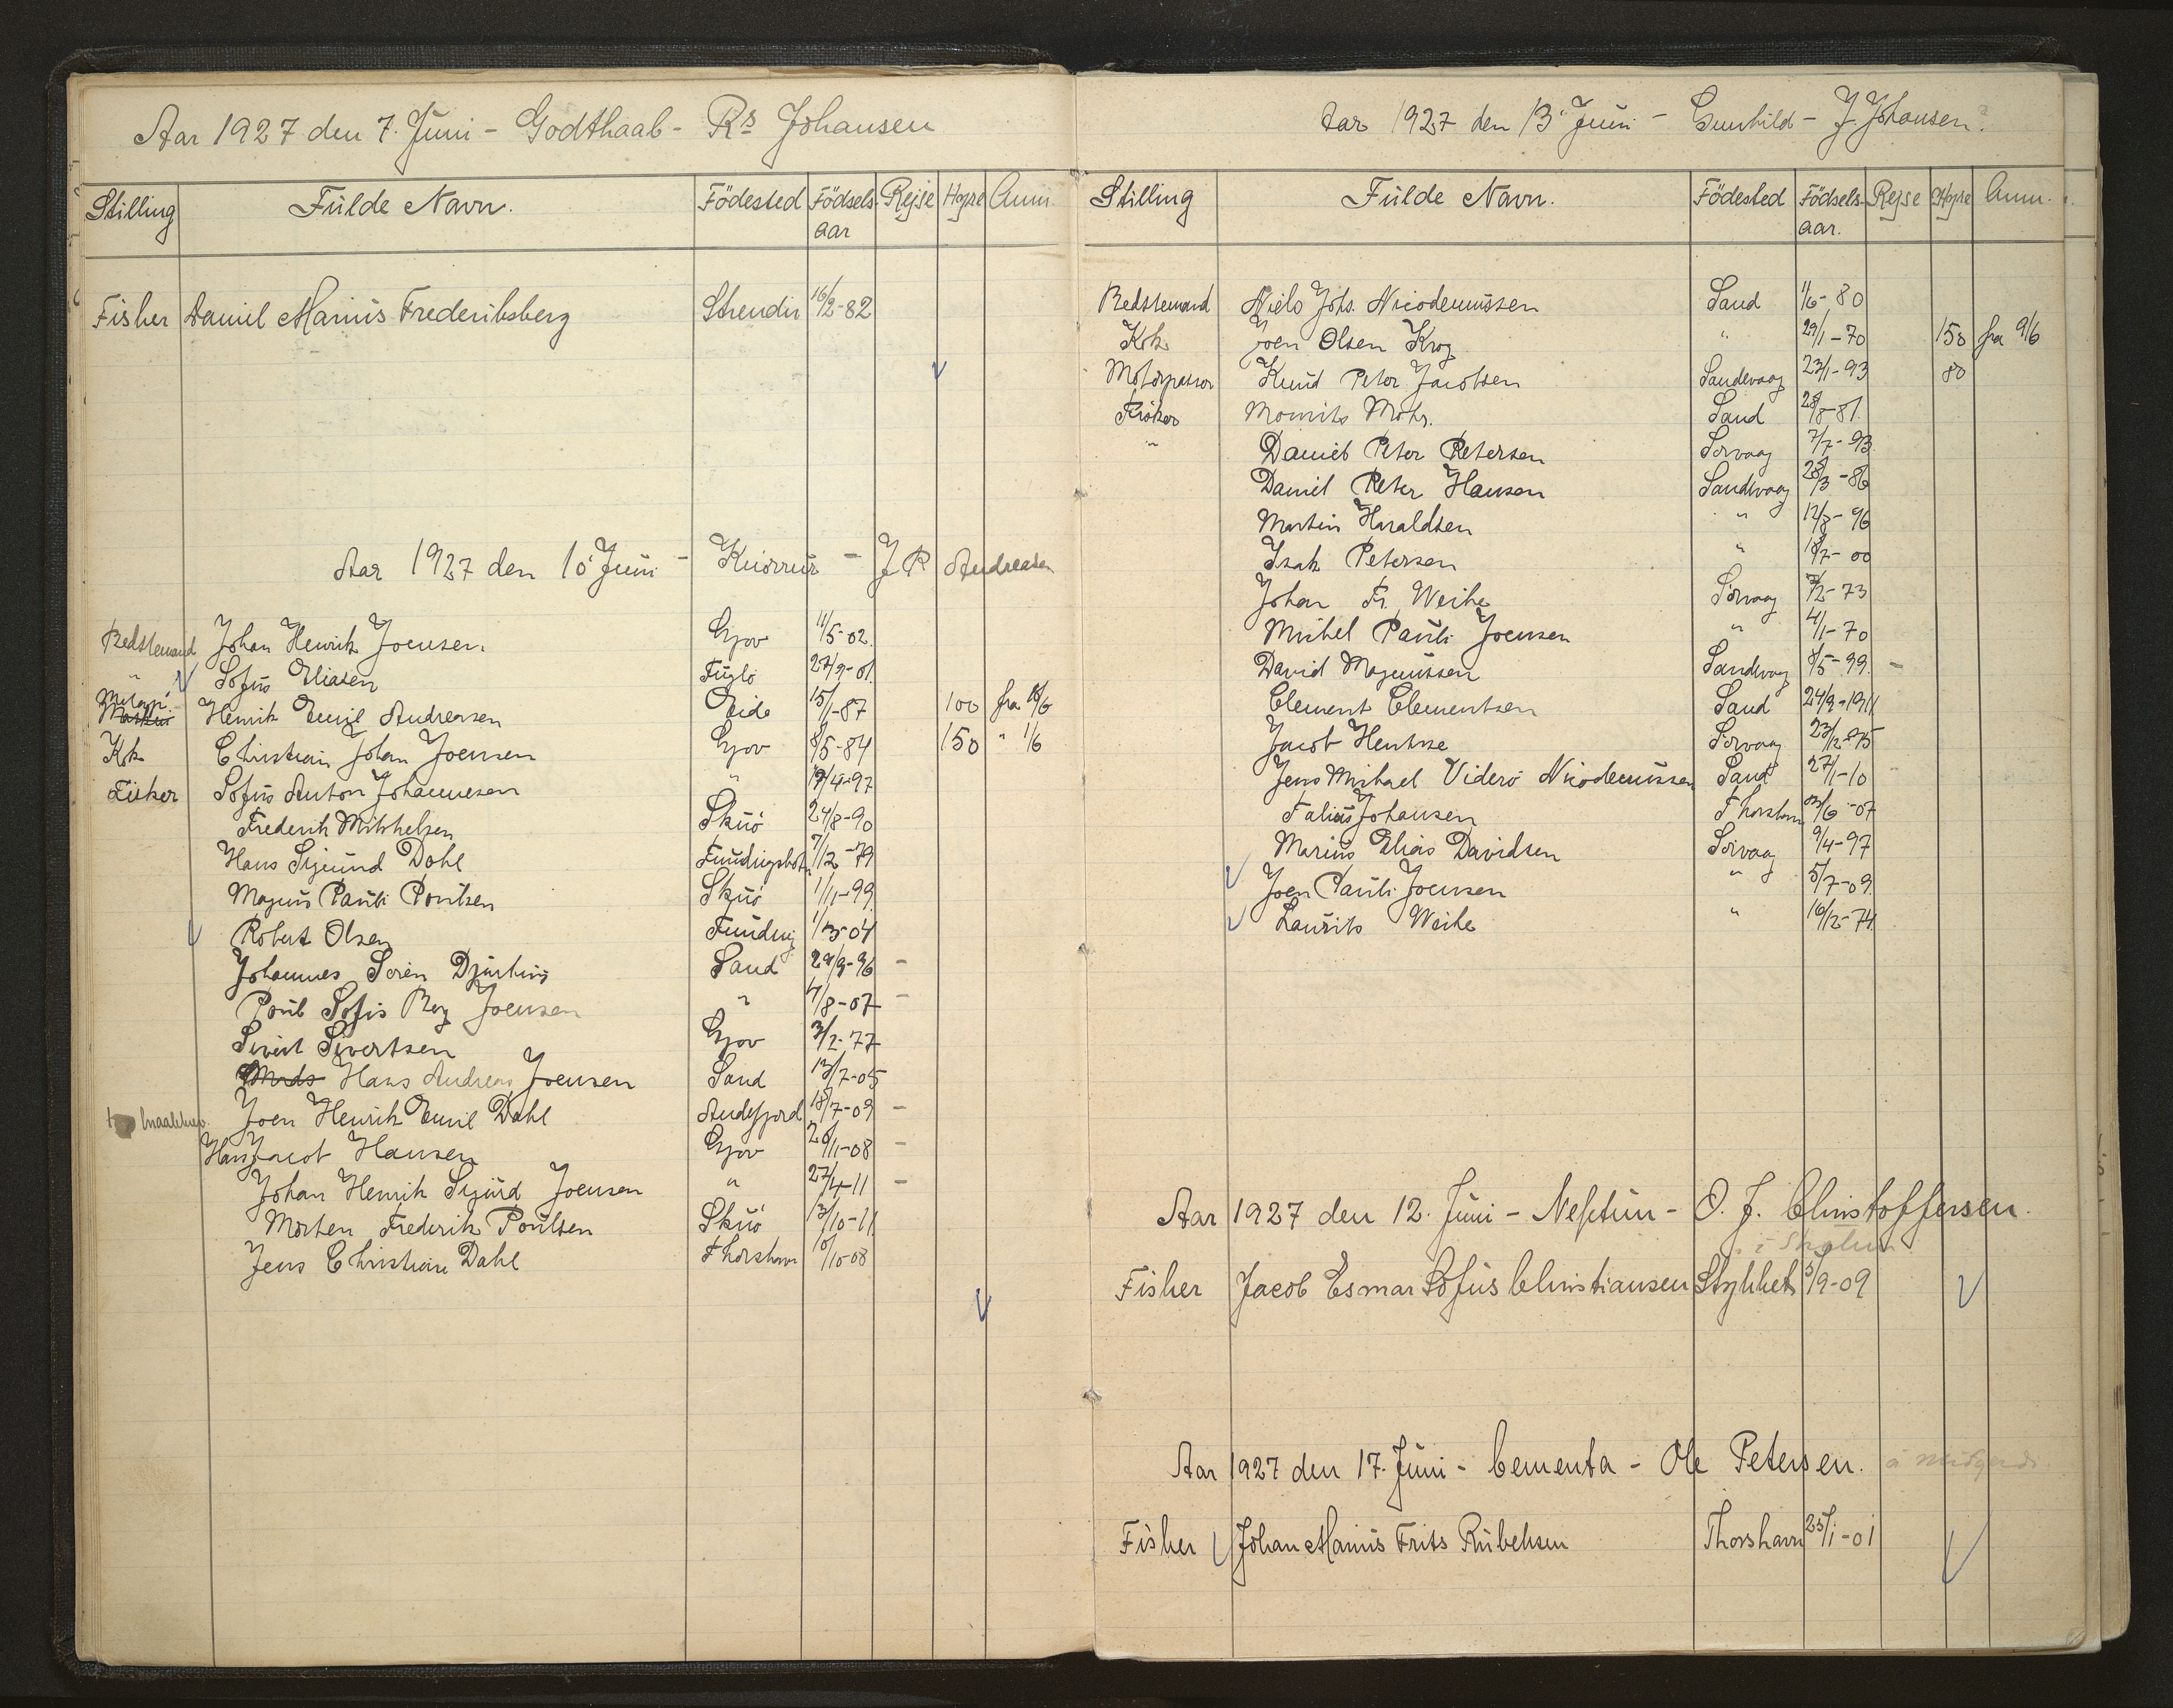 Aar 1927 den 7. Juni - Godthaab - Rs Johansen
Stilling Fulde Navn. Födested Födsels aar Rejse Hyre Anm.
Fisker Daniel Marius Frederiksberg Strender 16/2-82
Aar 1927 den 10 Juni - Knörrur - J P Andreasen
Bedstemand Johan Henrik Joensen Gjov 11/5-02.
" Sofus Eliasen Fuglö 27/9-01.
Motorp. Henrik Emil Andreasen Eide 15/1-87 100 fra 16/6
Kok Christian Johan Joensen Gjov 8/5-84 150 " 1/6
Fisker Sofus Anton Johannesen " 19/4-97
Frederik Mikkelsen Skuö 24/8-90
Hans Sigmund Dahl Fundingsbotn 7/12-79
Magnus Pauli Poulsen Skuö 1/11-99.
Robert Olsen Funding 1/3-04
Johannes Sören Djurhus Sand 29/9-96 -
Poul Sofus Berg Joensen " 4/8-07 -
Sivert Sivertsen Gjov 3/2-77
Hans Andreas Joensen Sand 13/7-05
Joen Henrik Emil Dahl Andefjord 18/7-09 -
Hans Jacob Hansen Gjov 26/11-08 -
Johan Henrik Sigurd Joensen " 27/4-11 -
Morten Frederik Poulsen Skuö 13/10-11
Jens Christian Dahl Thorshavn 10/10-08
Aar 1927 den 13 Juni - Gunhild - J. Johansen.
Stilling Fulde Navn. Födested Födsels-aar. Rejse Hyre Anm.
Bedstemand Niels Johs. Nicodemussen Sand 1/6-80
Kok Joen Olsen Krog " 29/1-70 150 fra 9/6
Motorpasser Knud Peter Jacobsen Sandvaag 23/1-93 80
Fisker Mourits Mohr. Sand 28/8-81.
" Daniel Peter Petersen Sörvaag 7/7-93
Daniel Peter Hansen Sandvaag 28/3-86
Martin Haraldsen " 12/8-96
Isak Petersen " 18/7-00
Johan Fr. Weihe Sörvaag 7/2-73
Mikkel Pauli Joensen " 4/1-70
David Magnussen Sandvaag 8/5-99. -
Clement Clementsen Sand 24/9-1911
Jacob Hentze Sörvaag 23/12-75
Jens Michael Viderö Nicodemussen Sand 27/1-10
Falius Johansen Thorshavn 23/6-07
Marius Elias Davidsen Sörvaag 9/4-97
Joen Pauli Joensen " 5/7-09.
Laurits Weihe " 16/12-74
Aar 1927 den 12. Juni - Neptun - O. J. Christoffersen.
Fisker Jacob Esmar Sofus Christiansen Stykket 5/9-09
Aar 1927 den 17. Juni - Cementa - Ole Petersen.
Fisker Johan Marius Frits Rübeksen Thorshavn 25/1-01